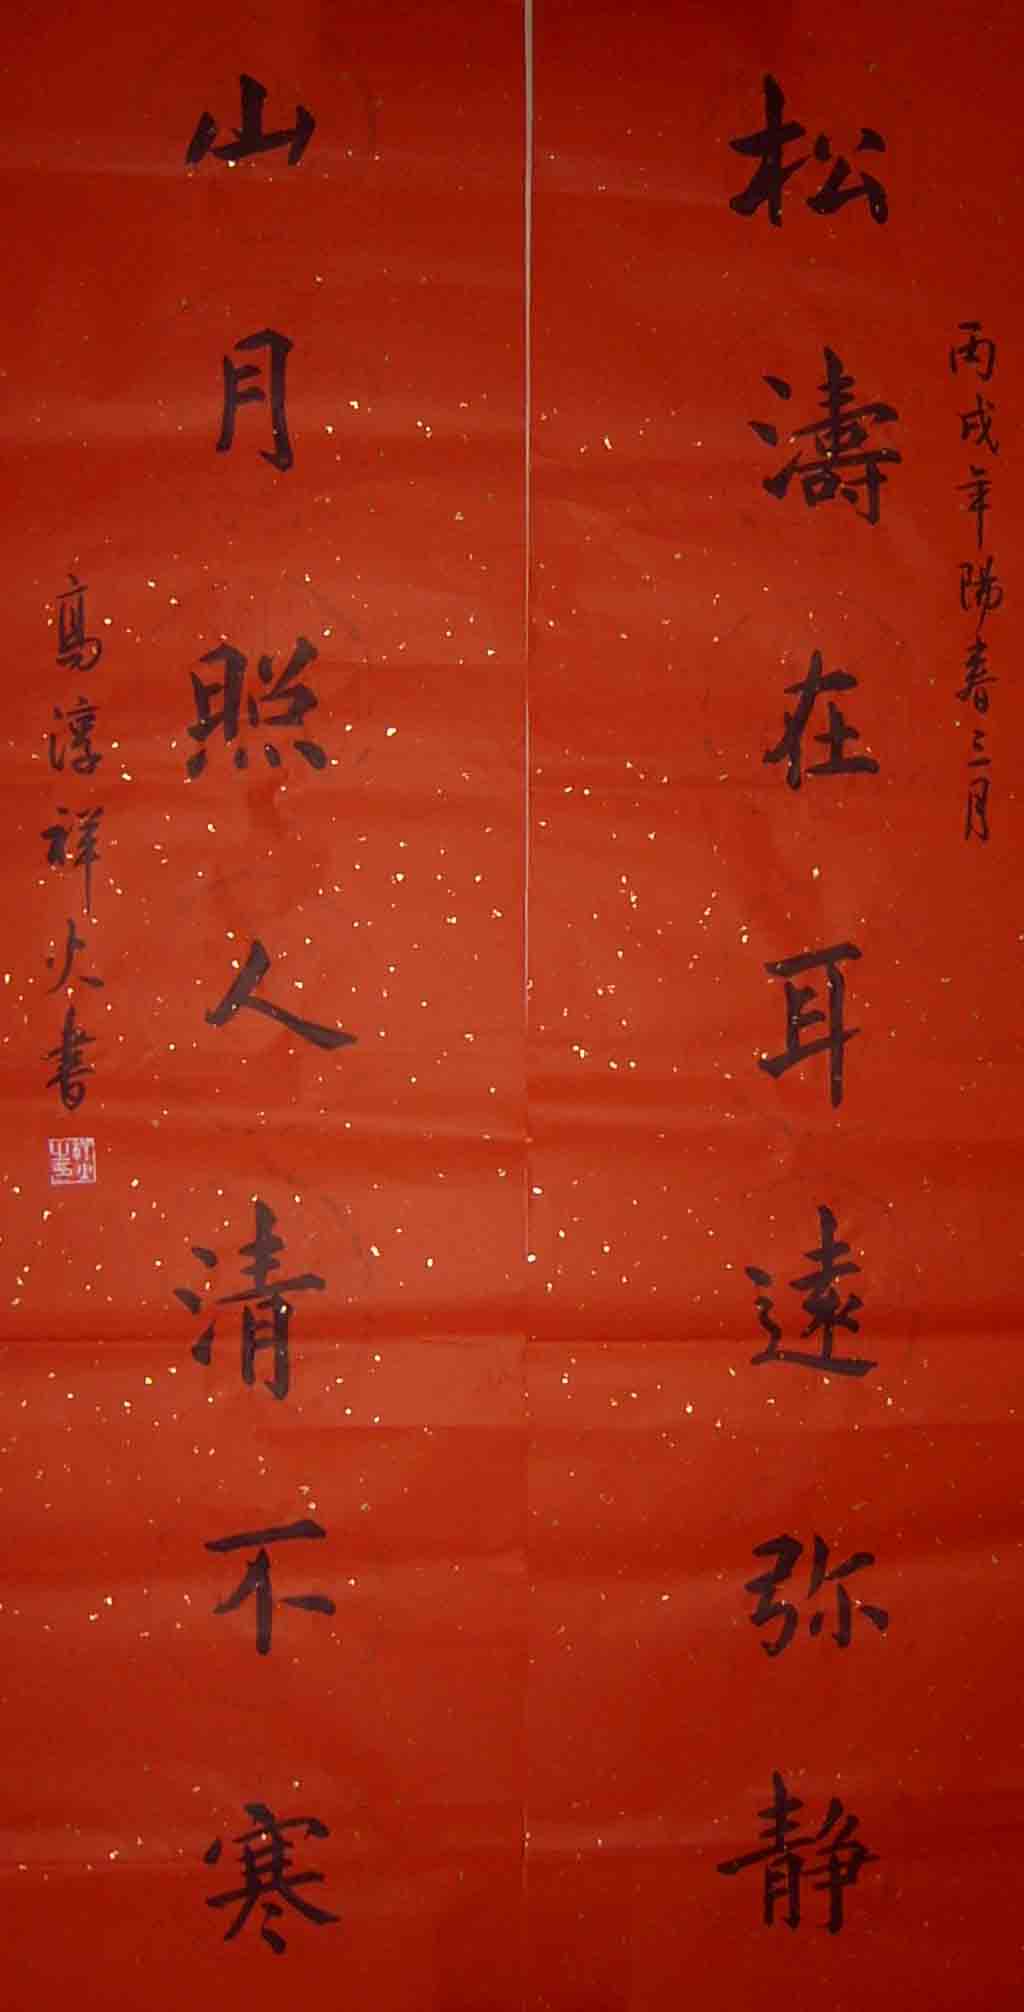 丙戌年陽春三月
松濤在耳遠弥静
山月照人清不寒
高淳祥火書